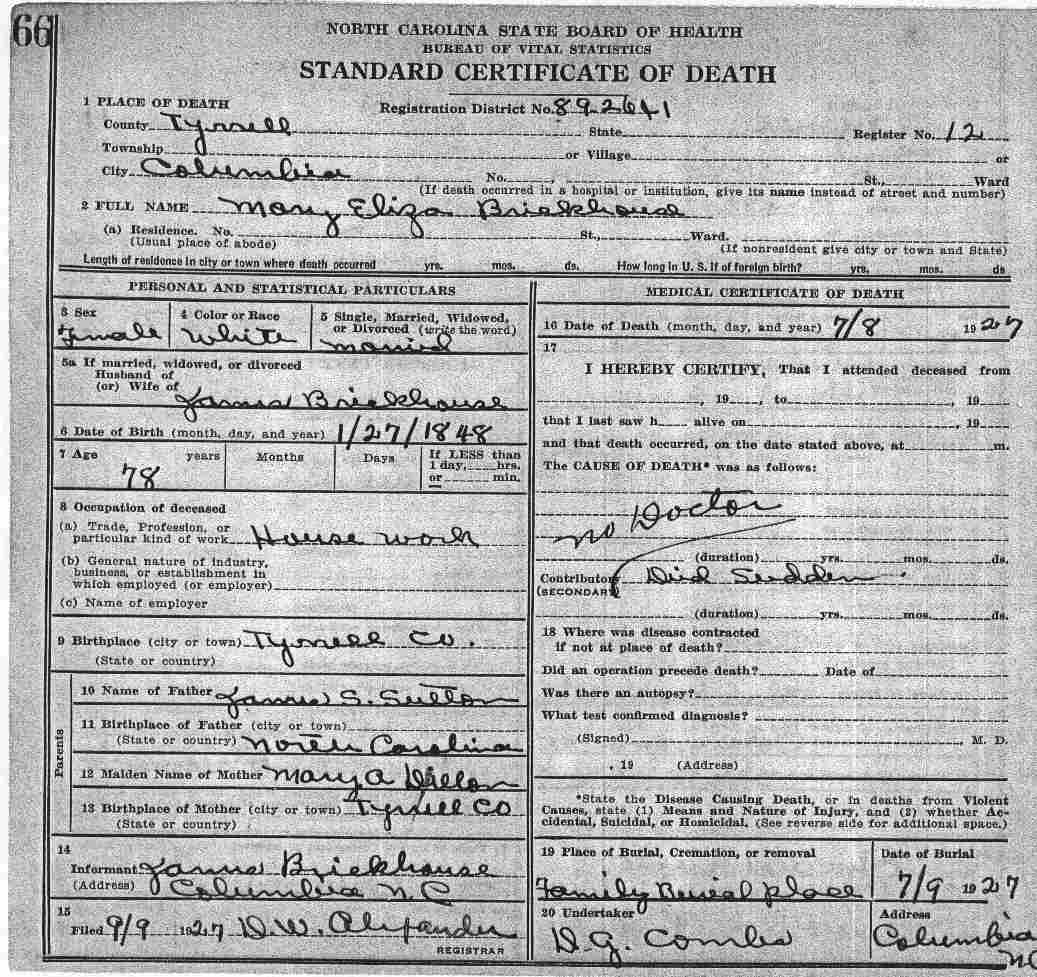 66
NORTH CAROLINA STATE BOARD OF HEALTH
BUREAU OF VITAL STATISTICS
STANDARD CERTIFICATE OF DEATH
1 PLACE OF DEATH Registration District No. 892641
County Tyrrell State Register No. 12
Township or Village or
City Columbia No. , St., Ward
(If death occurred in a hospital or institution, give its name instead of street and number)
2 FULL NAME Mary Eliza Brickhouse
(a) Residence. No. St., Ward.
(Usual place of abode) (If nonresident give city or town and State)
Length of residence in city or town where death occurred yrs. mos. ds. How long in U. S. if of foreign birth? yrs. mos. ds
PERSONAL AND STATISTICAL PARTICULARS
3 Sex 4 Color or Race 5 Single, Married, Widowed,
or Divorced (write the word)
Female White married
5a If married, widowed, or divorced
Husband of
(or) Wife of
James Brickhouse
6 Date of Birth (month, day, and year) 1/27/1848
7 Age years Months Days If LESS than
1 day, hrs.
78 or min.
8 Occupation of deceased
(a) Trade, Profession, or
particular kind of work House work
(b) General nature of industry,
business, or establishment in
which employed (or employer)
(c) Name of employer
9 Birthplace (city or town) Tyrrell Co.
(State or country)
Parents
10 Name of Father James S. Sutton
11 Birthplace of Father (city or town)
(State or country) North Carolina
12 Maiden Name of Mother Mary A Dillon
13 Birthplace of Mother (city or town) Tyrrell CO
(State or country)
14
Informant James Brickhouse
(Address) Columbia N.C
15
Filed 9/9 1927 D.W. Alexander
REGISTRAR
MEDICAL CERTIFICATE OF DEATH
16 Date of Death (month, day, and year) 7/8 1927
17
I HEREBY CERTIFY, That I attended deceased from
, 19 , to , 19
that I last saw h alive on , 19
and that death occurred, on the date stated above, at m.
The CAUSE OF DEATH* was as follows:
no Doctor
(duration) yrs. mos. ds.
Contributory Died Sudden
(SECONDARY)
(duration) yrs. mos. ds.
18 Where was disease contracted
if not at place of death?
Did an operation precede death? Date of
Was there an autopsy?
What test confirmed diagnosis?
(Signed) , M. D.
, 19 (Address)
*State the Disease Causing Death, or in deaths from Violent
Causes, state (1) Means and Nature of Injury, and (2) whether Ac-
cidental, Suicidal, or Homicidal. (See reverse side for additional space.)
19 Place of Burial, Cremation, or removal Date of Burial
Family Burial place 7/9 1927
20 Undertaker Address
D.G. Combs Columbia
NC